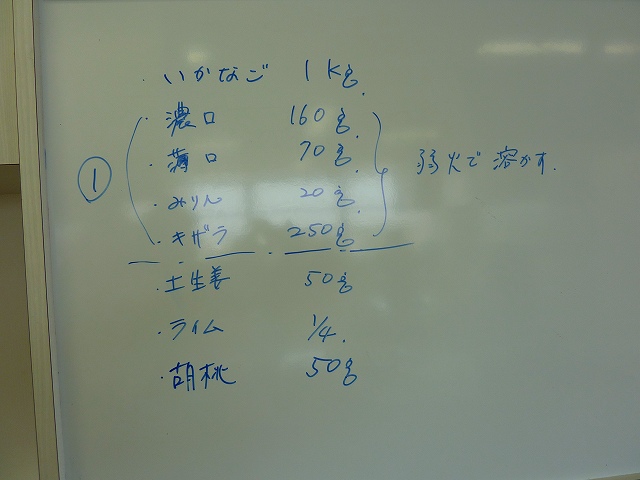 ・いかなご 1Kg.
・濃口 160g.
① ・薄口 70g. 弱火で溶かす.
・みりん 20g.
・キザラ 250g
・土生姜 50g
・ライム 1/4.
・胡桃 50g